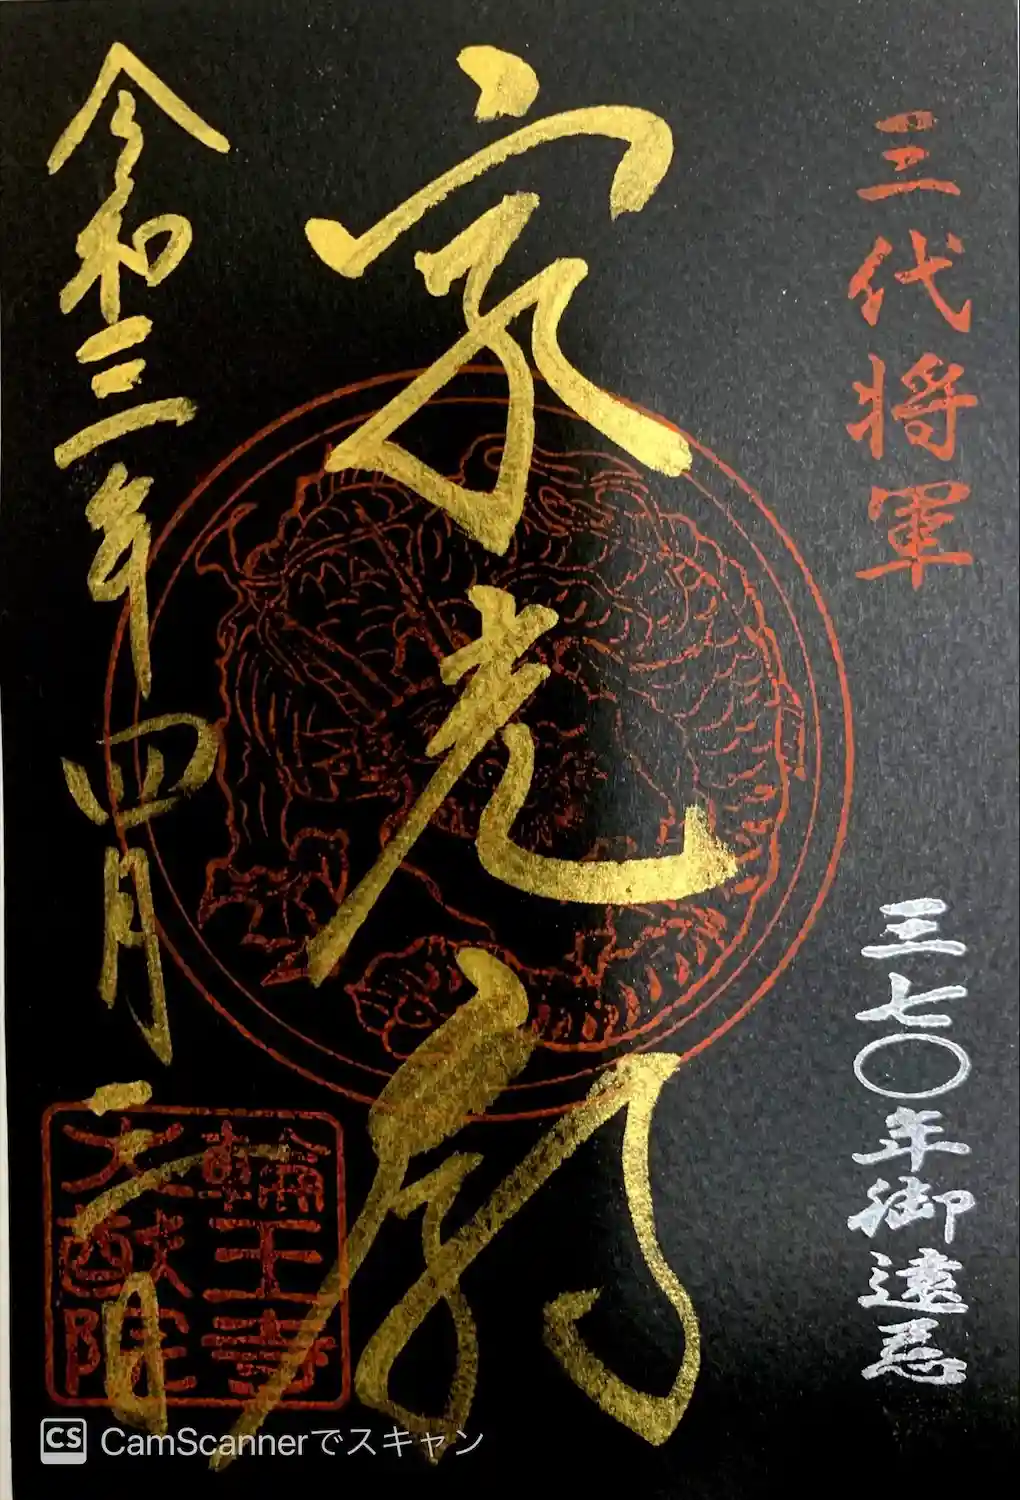 三代将軍
三七〇年御遠忌
家光廟
令和三年四月
輪王寺
大猷院
CS CamScannerでスキャン